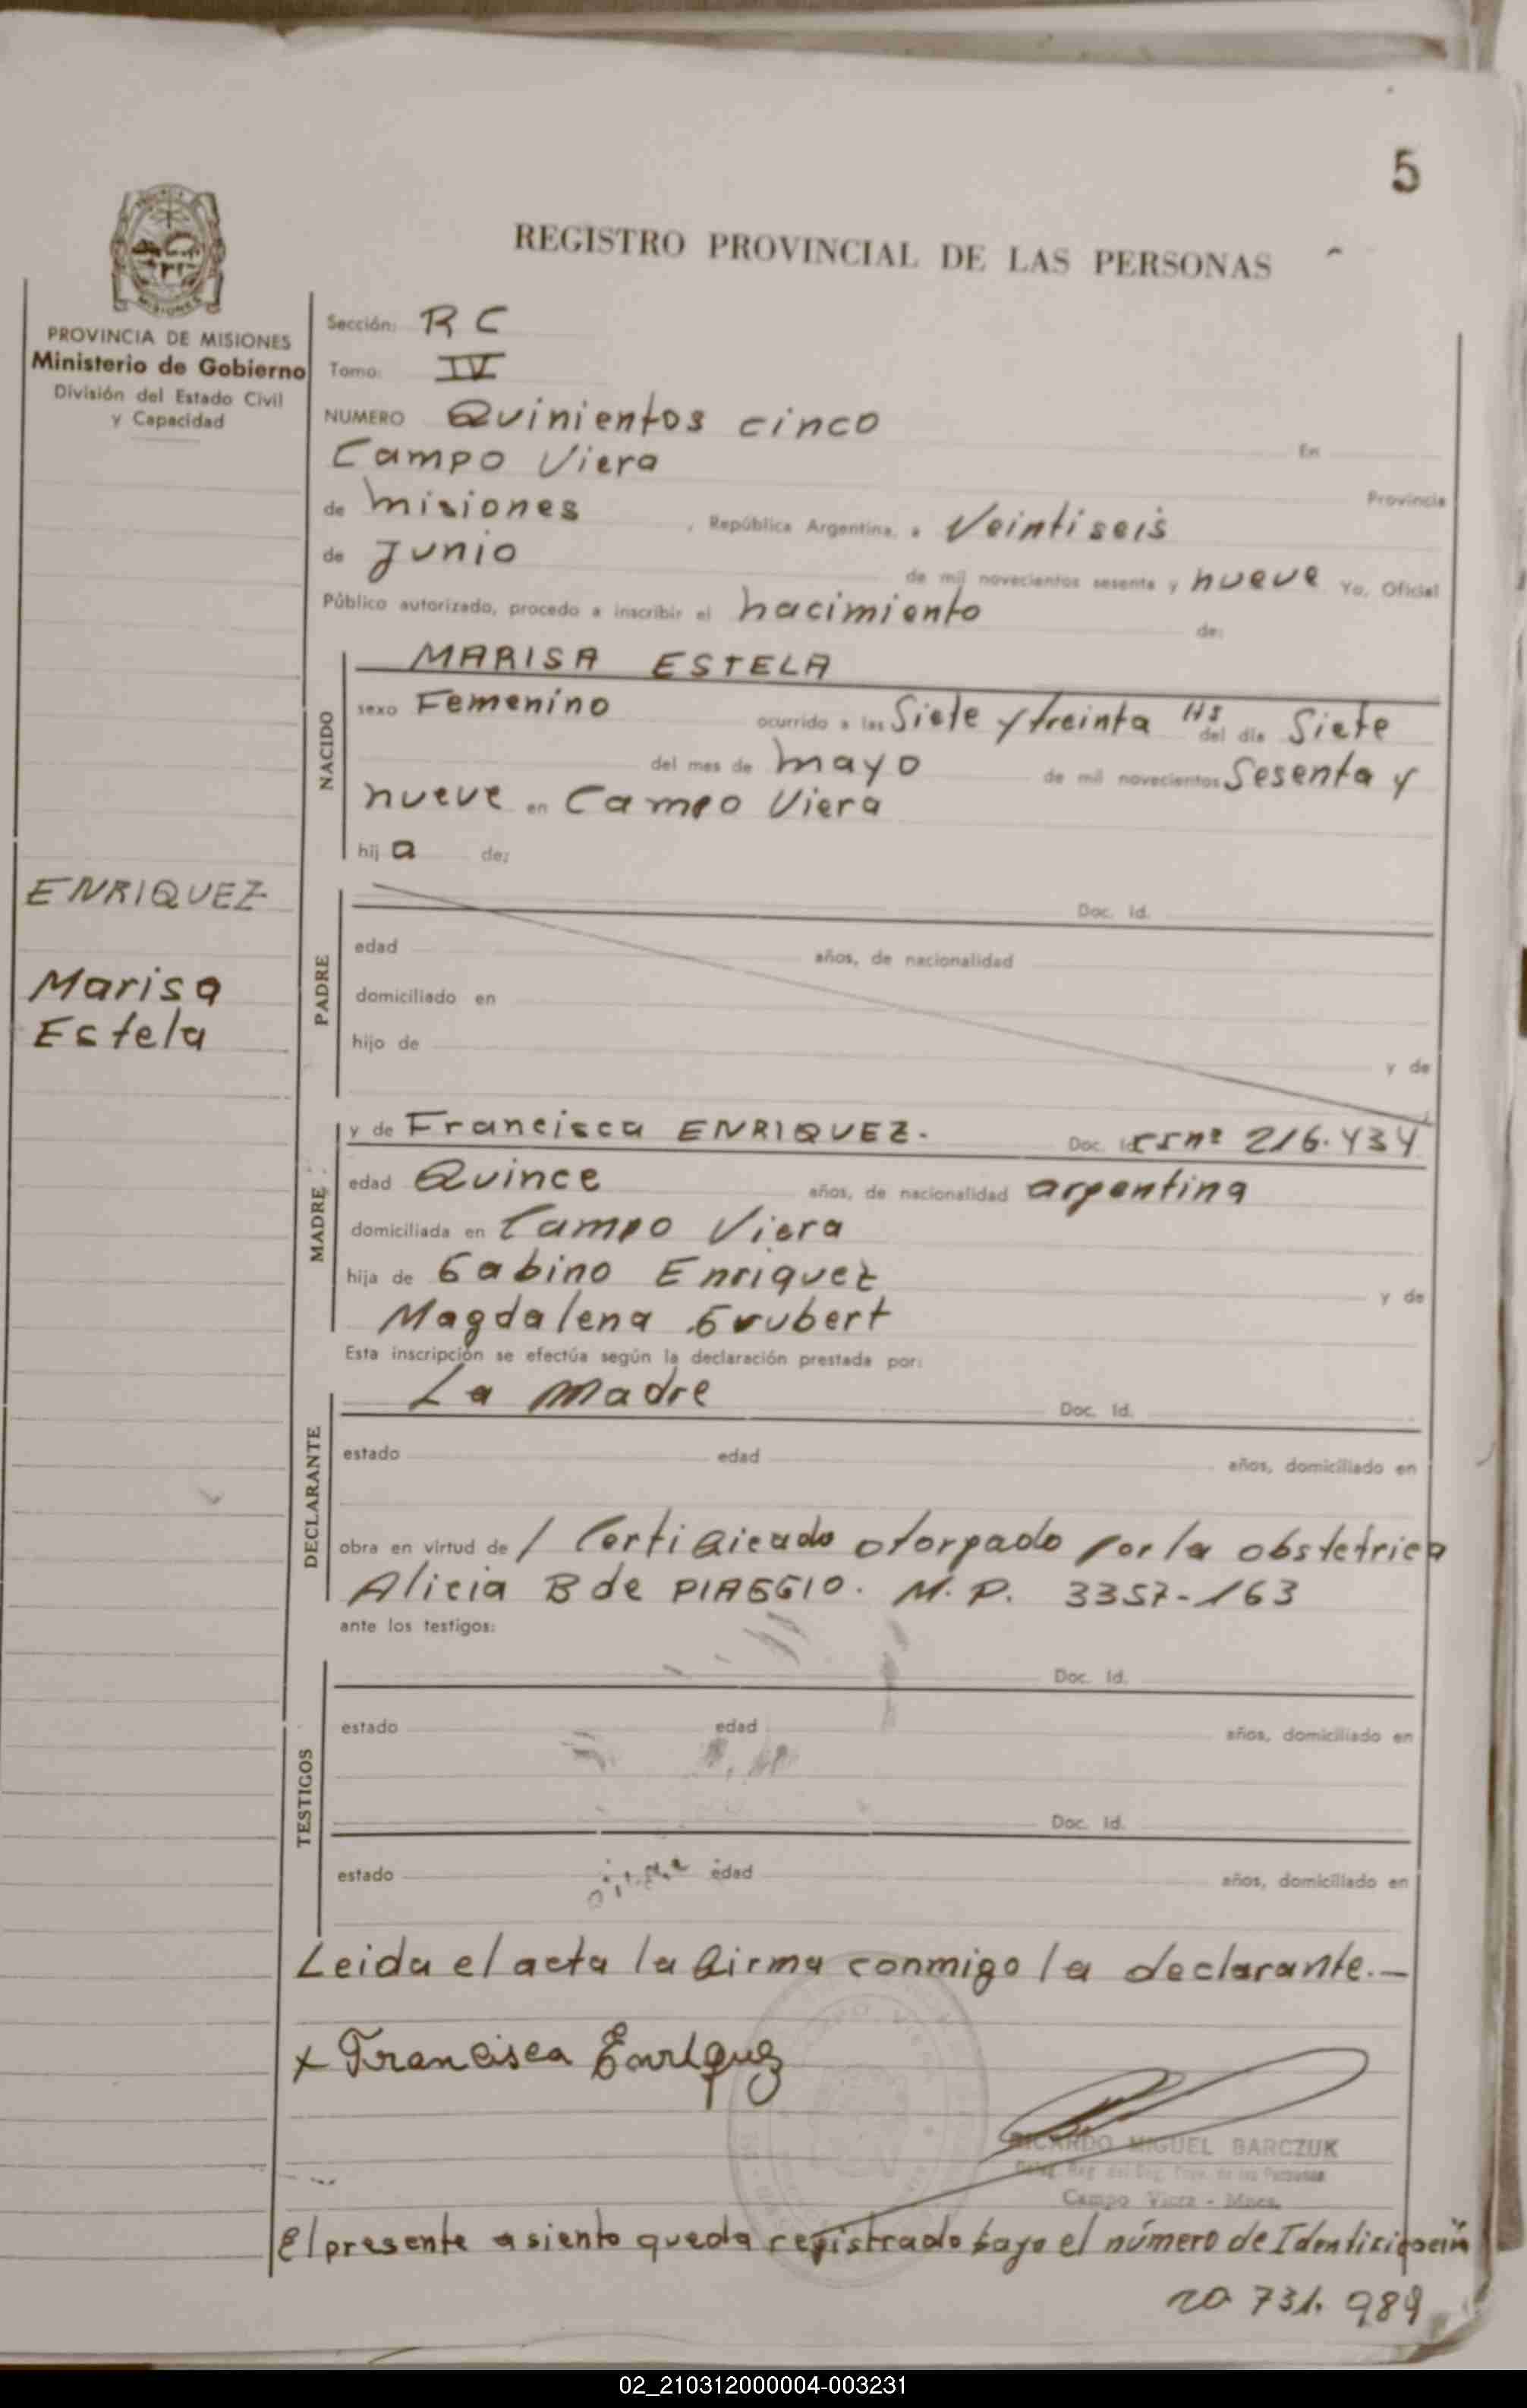 5
REGISTRO PROVINCIAL DE LAS PERSONAS
PROVINCIA DE MISIONES
Ministerio de Gobierno
División del Estado Civil
y Capacidad
Sección: R C
Tomo: IV
NUMERO Quinientos cinco En
Campo Viera Provincia
de misiones, República Argentina, a Veintiseis
de Junio de mil novecientos sesenta y nueve Yo, Oficial
Público autorizado, procedo a inscribir el nacimiento de:
NACIDO
MARISA ESTELA
sexo Femenino ocurrido a las Siete y treinta Hs del día Siete
del mes de mayo de mil novecientos Sesenta y
nueve en Campo Viera
hij a de:
ENRIQUEZ
Marisa
Estela
PADRE
Doc. Id.
edad años, de nacionalidad
domiciliado en
hijo de y de
MADRE
y de Francisca ENRIQUEZ. Doc. Id. 216.434
edad Quince años, de nacionalidad argentina
domiciliada en Campo Viera
hija de Gabino Enriquez y de
Magdalena Grubert
Esta inscripción se efectúa según la declaración prestada por:
DECLARANTE
La Madre Doc. Id.
estado edad años, domiciliado en
obra en virtud de / Certificado otorgado por la obstetrica
Alicia B de PIAGGIO. M. P. 3357-163
ante los testigos:
TESTIGOS
Doc. Id.
estado edad años, domiciliado en
Doc. Id.
estado edad años, domiciliado en
Leida el acta la firma conmigo la declarante.—
x Francisca Enriquez
RICARDO MIGUEL BARCZUK
Campo Viera - Mnes.
El presente asiento queda registrado bajo el número de Identificación
20.731.989
02_210312000004-003231